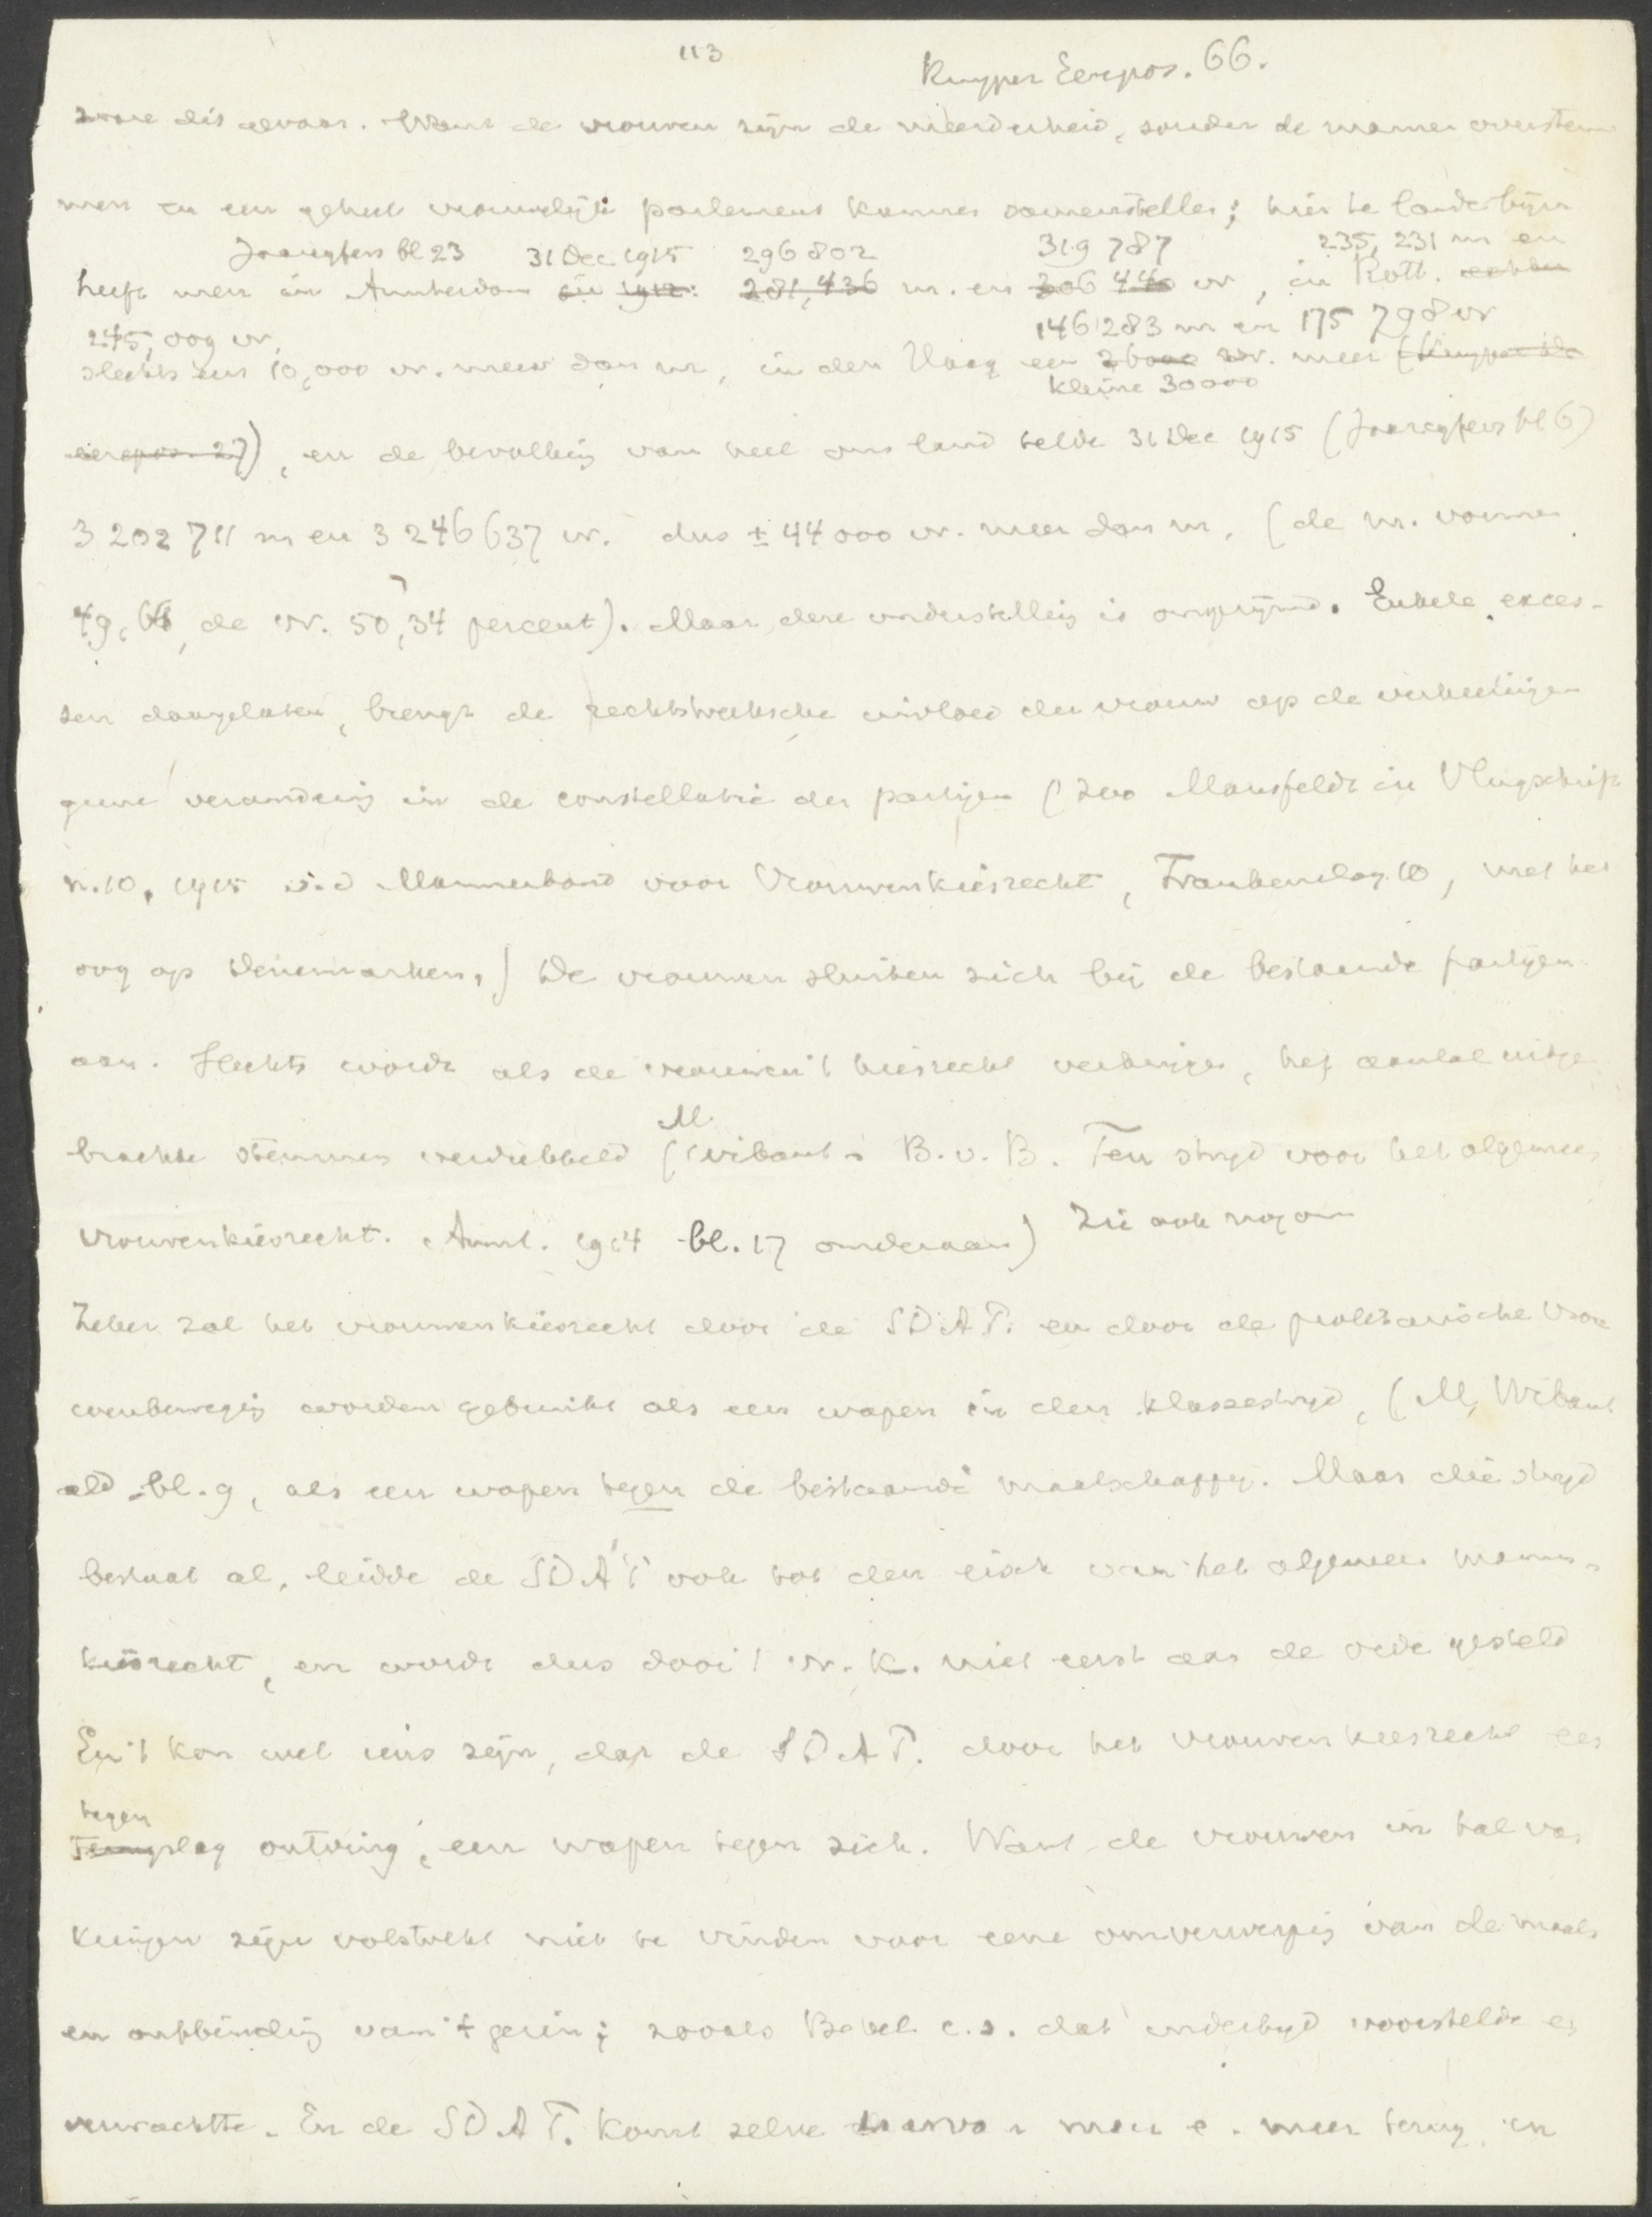 113
Kuyper Eerepos. 66.
ware dit gevaar. Want de vrouwen zijn de meerderheid, zouden de mannen overstem
men en een geheel vrouwelijk parlement kunnen samenstellen; hier te lande bijv.
Jaarcijfers bl 23 31 Dec 1915 296 802 319 787 235, 231 m en
heeft men in Amsterdam in 1912: 281,436 m. en 306 440 vr, in Rott.
245,009 vr, 146 283 m en 175 798 vr
slechts een 10,000 vr. meer dan m, in den Haag een 26000 vr. meer (Kuyper de
kleine 30000
eerepos. 27), en de bevolking van heel ons land telde 31 Dec 1915 (Jaarcijfers bl 6)
3 202 711 m en 3 246 637 vr. dus ± 44 000 vr. meer dan m, (de m. vormen
49,66, de vr. 50,34 percent). Maar deze onderstelling is ongerijmd. Enkele exces-
sen daargelaten, brengt de rechtstreeksche invloed der vrouw op de verkiezingen
geene verandering in de constellatie der partijen (zoo Mansfeldt in Vlugschrift
n. 10, 1915 v. d Mannenbond voor Vrouwenkiesrecht, 10, met het
oog op Denemarken,) De vrouwen sluiten zich bij de bestaande partijen
aan. Slechts wordt als de vrouwen 't kiesrecht verkrijgen, het aantal uitge
M.
brachte stemmen verdubbeld (Wibaut - B. v. B. Ten strijd voor het algemeen
vrouwenkiesrecht. Amst. 1914 bl. 17 onderaan) Zie ook nog om
Zeker zal het vrouwenkiesrecht door de SDAP. en door de proletarische Vrou
wenbeweging worden gebruikt als een wapen in den klassestrijd, (M, Wibaut
ald. bl. 9, als een wapen tegen de bestaande maatschappij. Maar die strijd
bestaat al, leidde de SDAP ook tot den eisch van het algemeen mannen-
kiesrecht, en wordt dus door 't vr. k. niet eerst aan de orde gesteld
En 't kon wel eens zijn, dat de SDAP. door het vrouwenkiesrecht een
tegen
slag ontving, een wapen tegen zich. Want de vrouwen in tal van
kringen zijn volstrekt niet te vinden voor eene omverwerping van de maats
en ontbinding van 't gezin; zooals Bebel c.s. dat indertijd voorstelde en
verwachtte. En de SDAP. komt zelve daarvan meer e. meer terug, en